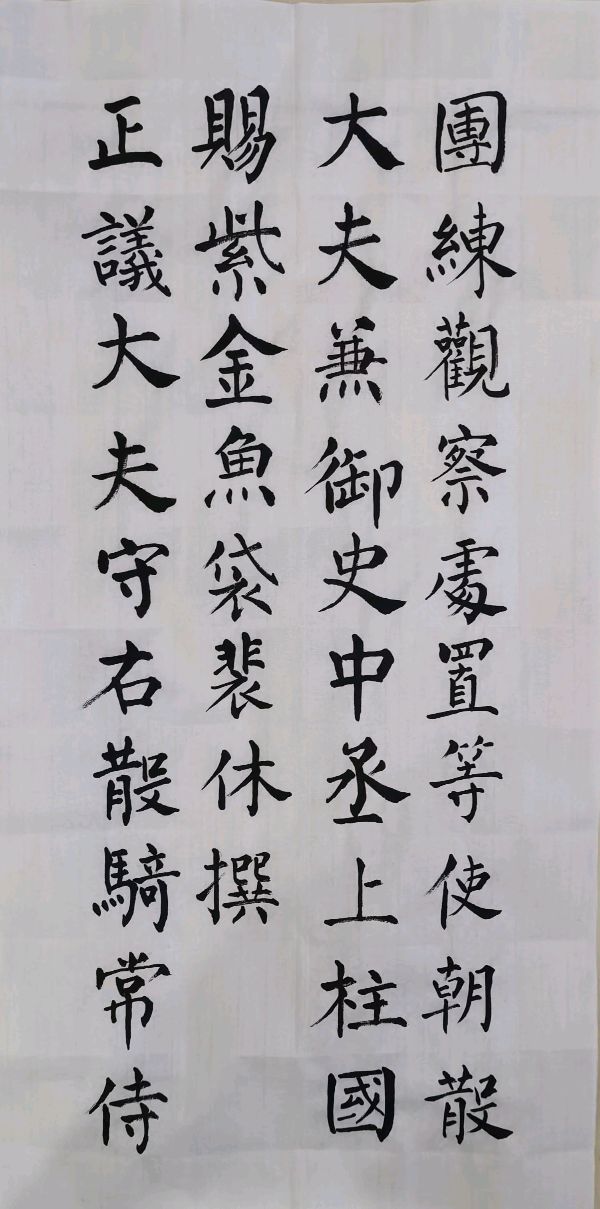 團練觀察處置等使朝散
大夫兼御史中丞上柱國
賜紫金魚袋裴休撰
正議大夫守右散騎常侍